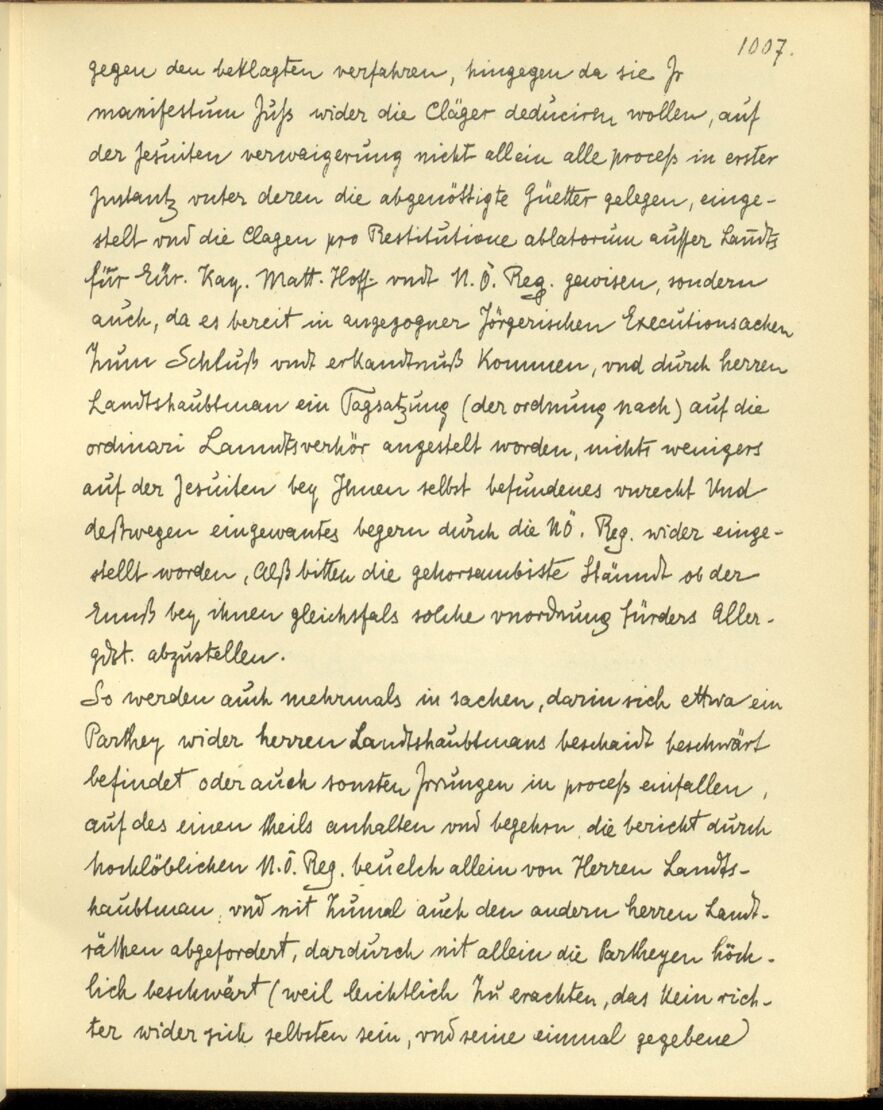 1007.
gegen den beklagten verfahren, hingegen da sie Jr
manifestum Juſs wider die Cläger deduciren wollen, auf
der Jesuiten verwaigerung nicht allein alle proceſs in erster
Instantz vnter deren die abgenöttigte Güetter gelegen, einge-
stelt vnd die Clagen pro Restitutione ablatorum ausser Landts
für Eür. Kay. Matt. Hoff vndt N.Ö. Reg. gewisen, sondern
auch, da es bereit in angezogner Jörgerischen Executionsachen
Zum Schluß vndt erkandtnuß Kommen, vnd durch herren
Landtshaubtman ein Tagsatzung (der ordnung nach) auf die
ordinari Lanndtsverhör angestelt worden, nichts wenigers
auf der Jesuiten bey Jhnen selbst befundenes vnrecht Und
deßwegen eingewantes begern durch die NÖ. Reg. wider einge-
stellt worden, Alß bitten die gehorsambiste Stänndt ob der
Ennß bey ihnen gleichsfals solche vnordnung fürders Aller-
gdst. abzustellen.
So werden auch mehrmals in sachen, darin sich ettwa ein
Parthey wider herren Landtshaubtmans beschaidt beschwärt
befindet oder auch sonsten Jrrungen in proceſs einfallen,
auf des einen theils anhalten vnd begehrn, die bericht durch
hochlöblichen N.Ö. Reg. beuelch allein von Herren Landts-
haubtman, vnd nit Zumal auch den andern herren Landt-
räthen abgefordert, dardurch nit allein die Partheyen höch-
lich beschwärt (weil leichtlich Zu erachten, das Kein rich-
ter wider sich selbsten sein, vnd seine einmal gegebene)